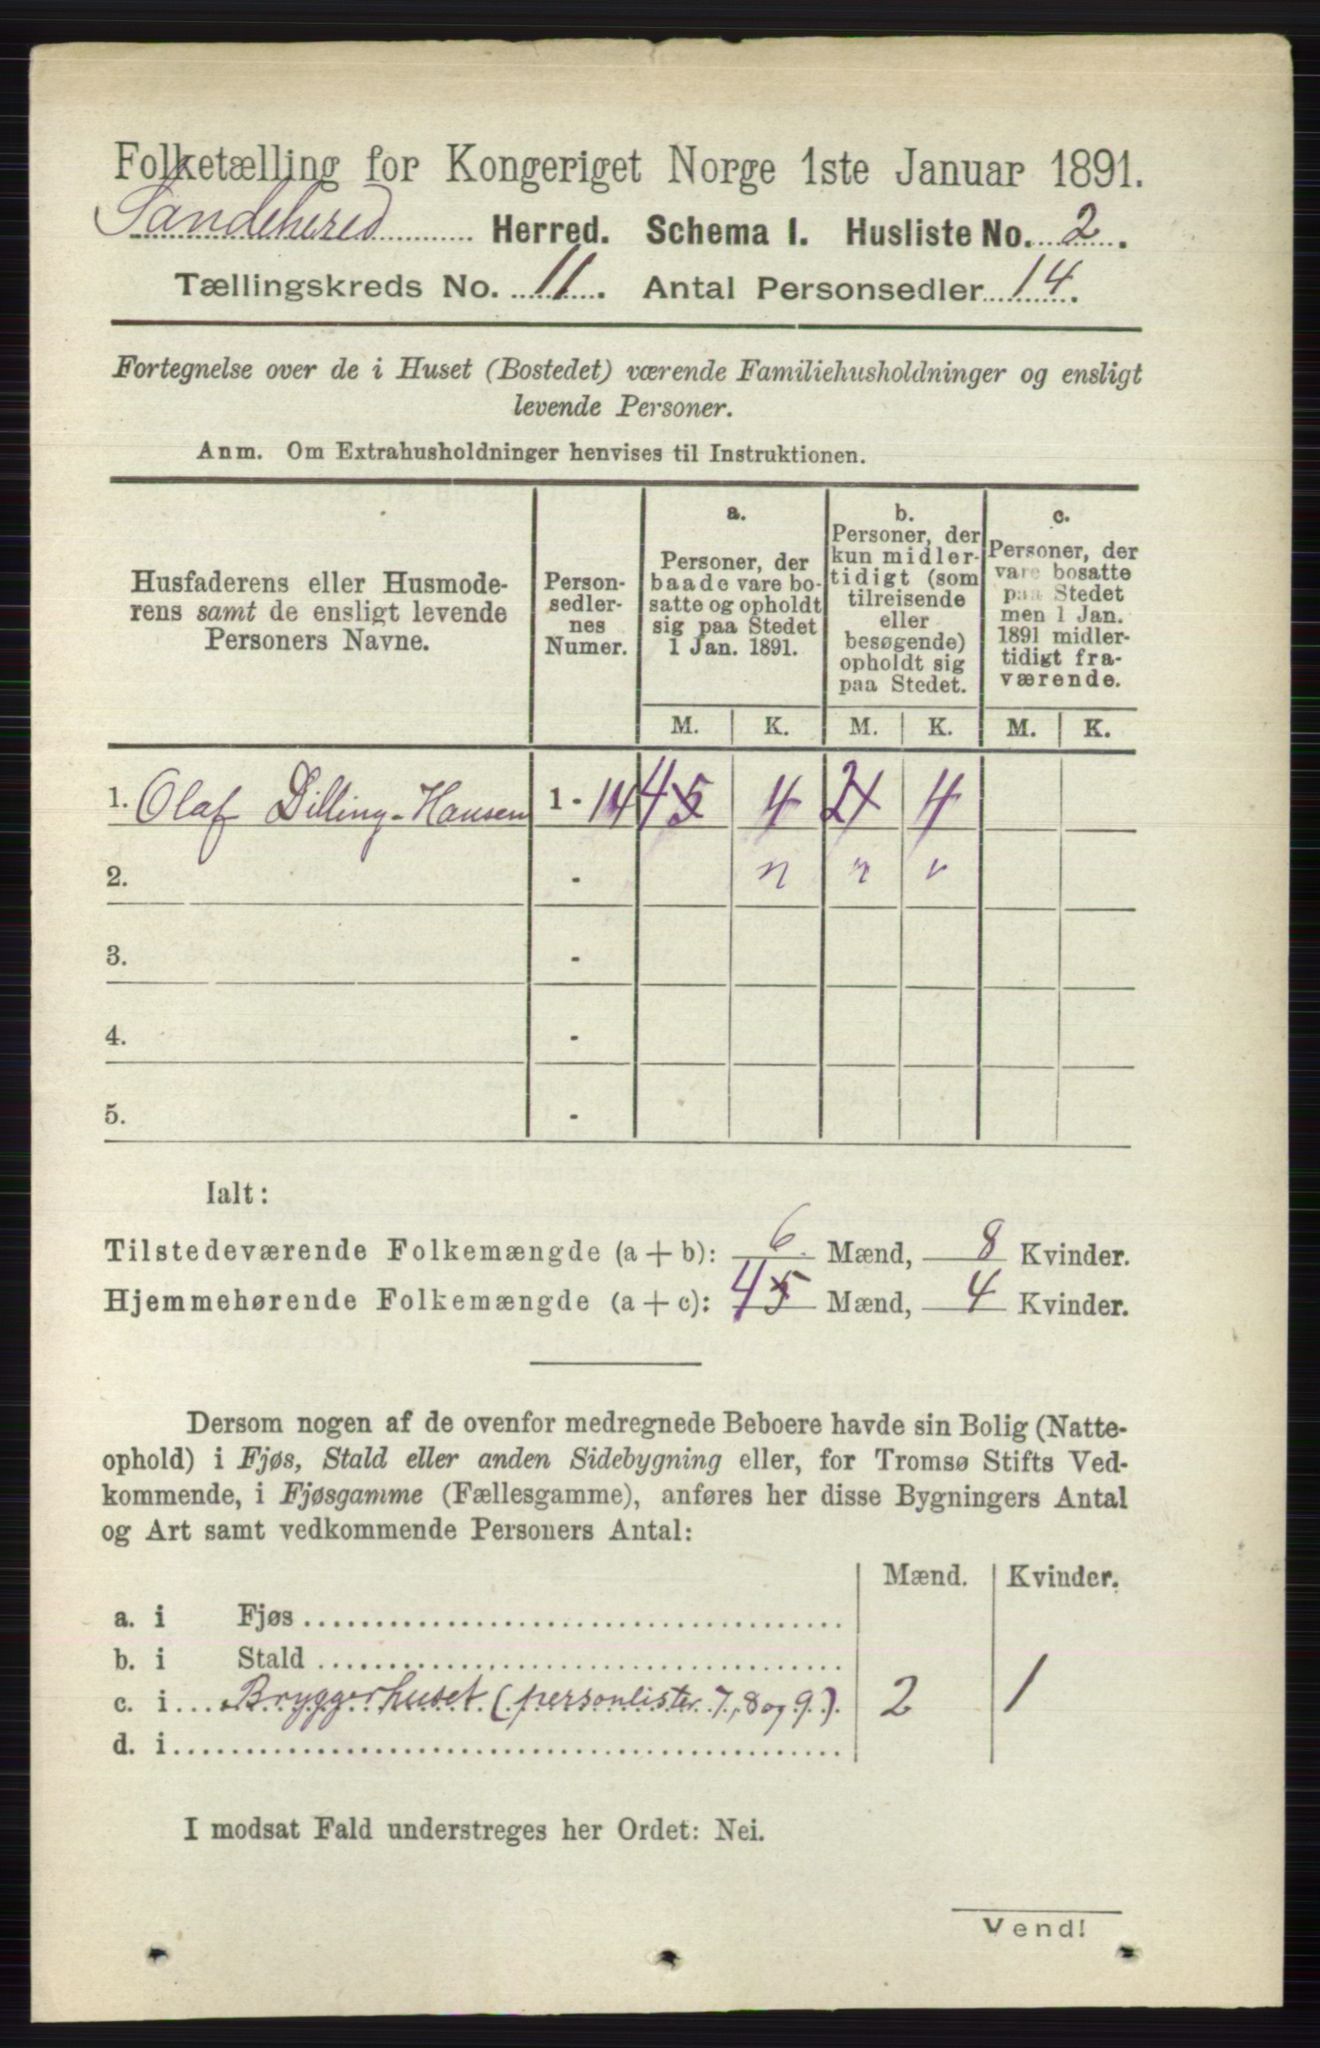 Folketælling for Kongeriget Norge 1ste Januar 1891.
Sandehered Herred. Schema I. Husliste No. 2.
Tællingskreds No. 11. Antal Personsedler 14.
Fortegnelse over de i Huset (Bostedet) værende Familiehusholdninger og ensligt
levende Personer.
Anm. Om Extrahusholdninger henvises til Instruktionen.
Husfaderens eller Husmode-
rens samt de ensligt levende
Personers Navne.
Person-
sedler-
nes
Numer.
a.
Personer, der
baade vare bo-
satte og opholdt
sig paa Stedet
1 Jan. 1891.
b.
Personer, der
kun midler-
tidigt (som
tilreisende
eller
besøgende)
opholdt sig
paa Stedet.
c.
Personer, der
vare bosatte
paa Stedet
men 1 Jan.
1891 midler-
tidigt fra-
værende.
M. K. M. K. M. K.
1. Olaf Dilling-Hansen 1 - 14 4 5 4 2 4
2. -
3. -
4. -
5. -
Ialt:
Tilstedeværende Folkemængde (a + b): 6 Mænd, 8 Kvinder.
Hjemmehørende Folkemængde (a + c): 4 5 Mænd, 4 Kvinder.
Dersom nogen af de ovenfor medregnede Beboere havde sin Bolig (Natte-
ophold) i Fjøs, Stald eller anden Sidebygning eller, for Tromsø Stifts Ved-
kommende, i Fjøsgamme (Fællesgamme), anføres her disse Bygningers Antal
og Art samt vedkommende Personers Antal:
Mænd. Kvinder.
a. i Fjøs
b. i Stald
c. i Bryggerhuset (personlister 7, 8 og 9). 2 1
d. i
I modsat Fald understreges her Ordet: Nei.
Vend!